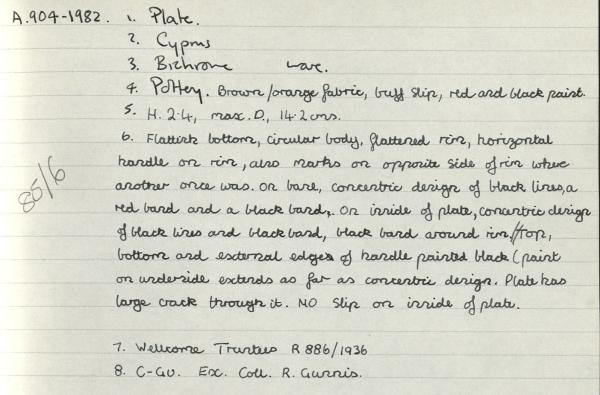 A.904-1982. 1. Plate.
2. Cyprus
3. Bichrome ware.
4. Pottery. Brown/orange fabric, buff slip, red and black paint.
5. H. 2.4, max. D., 14.2 cms.
6. Flattish bottom, circular body, flattened rim, horizontal
handle on rim, also marks on opposite side of rim where
another once was. On base, concentric design of black lines, a
red band and a black band,. On inside of plate, concentric design
of black lines and black band, black band around rim,//top,
bottom and external edges of handle painted black (paint
on underside extends as far as concentric design. Plate has
large crack through it. NO slip on inside of plate.
85/6
7. Wellcome Trustees R 886/1936
8. C-Gu. Ex. Coll. R. Gunnis.